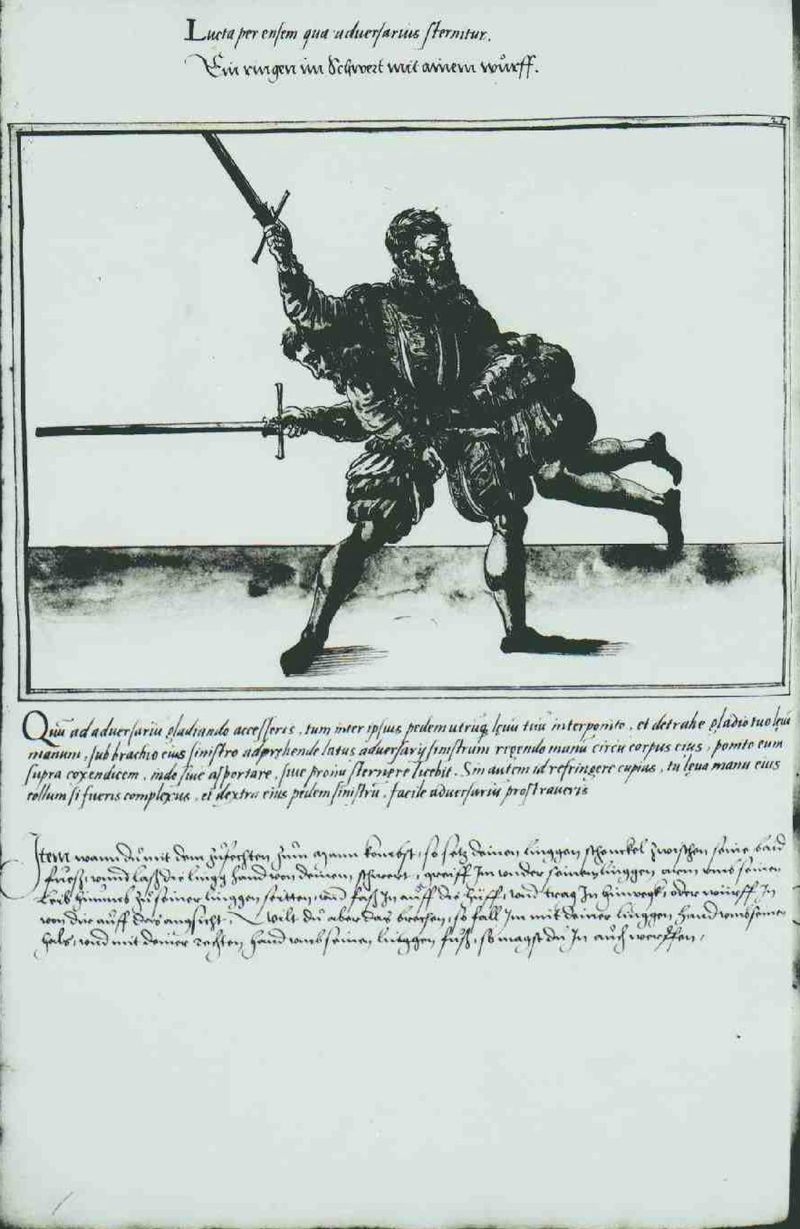 Lucta per ensem qua adversarius sternitur.
Ein ringen im Schwert mit ainem wůrff.
21
Quū ad adversariū gladiando accesseris, tum inter ipsius pedem utrūq; levū tuū interponito, et detrahe gladio tuo levā
manum, sub brachio eius sinistro adprehende latus adversarij sinistrum regendo manū circū corpus eius, ponito eum
supra coxendicem, inde sive asportare, sive pronū sternere licebit. Sin autem id refringere cupias, tu leva manu eius
collum si fueris complexus, et dextra eius pedem sinistrū, facile adversariū prostraveris
Item wann dů mit dem zůfechten zům Mann kombst, so setz deinen linggen schenckel zwischen seine baid
fuesz, unnd lasz die lingg hand von deinem schwert, greiff Im under seinem linggen arm umb seinen
Leib hinumb zů seiner linggen seitten, und fasz In auff die hüff, und trag In hinwegk, oder würff In
von dir auff das angsicht, Wilt dů aber das brechen, so fall Im mit deiner linggen hand umb seinen
hals, und mit deiner rechten hand umb seinen linggen fůsz, so magst dů In aůch werffen,